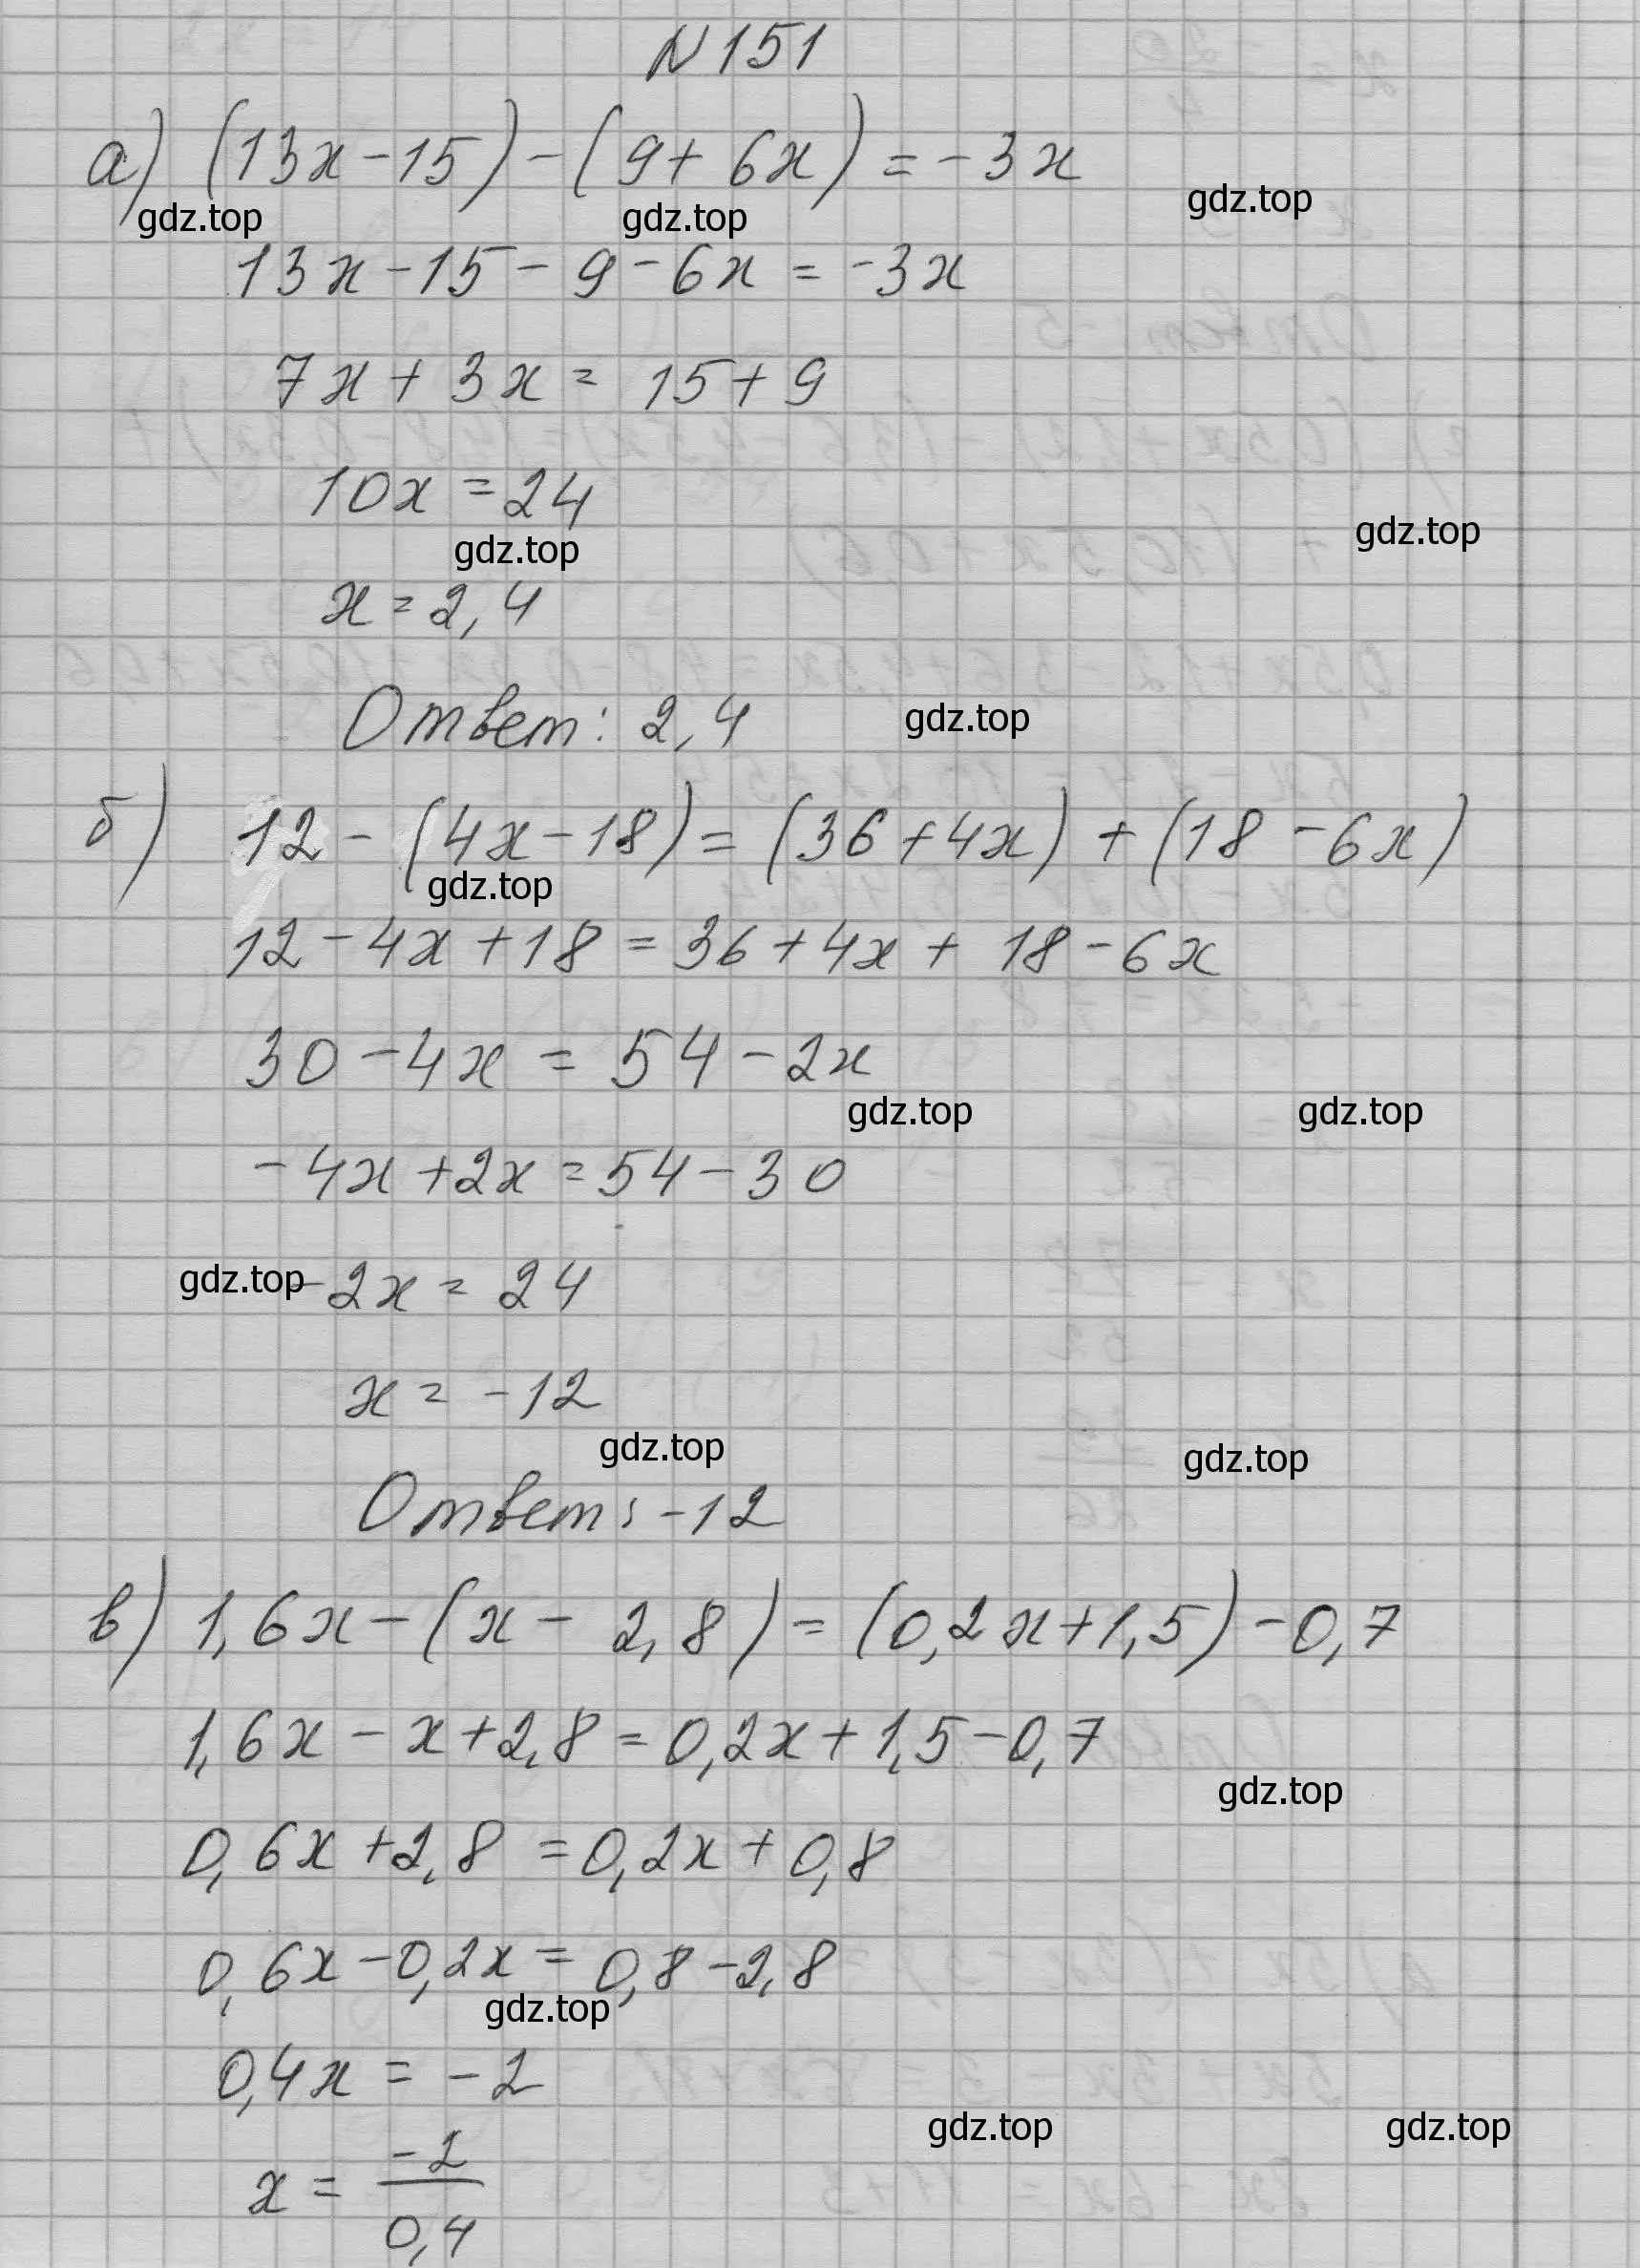 N151
а) (13x-15)-(9+6x)=-3x
gdz.top gdz.top gdz.top
13x-15-9-6x=-3x
7x+3x=15+9
10x=24
gdz.top gdz.top
x=2,4
Ответ: 2,4 gdz.top
б) 12-(4x-18)=(36+4x)+(18-6x)
gdz.top
12-4x+18=36+4x+18-6x
30-4x=54-2x
gdz.top gdz.top
-4x+2x=54-30
gdz.top -2x=24
x=-12
gdz.top gdz.top
Ответ: -12
в) 1,6x-(x-2,8)=(0,2x+1,5)-0,7
1,6x-x+2,8=0,2x+1,5-0,7
gdz.top
0,6x+2,8=0,2x+0,8
0,6x-0,2x=0,8-2,8
gdz.top
0,4x=-2
gdz.top gdz.top
x=-2/0,4